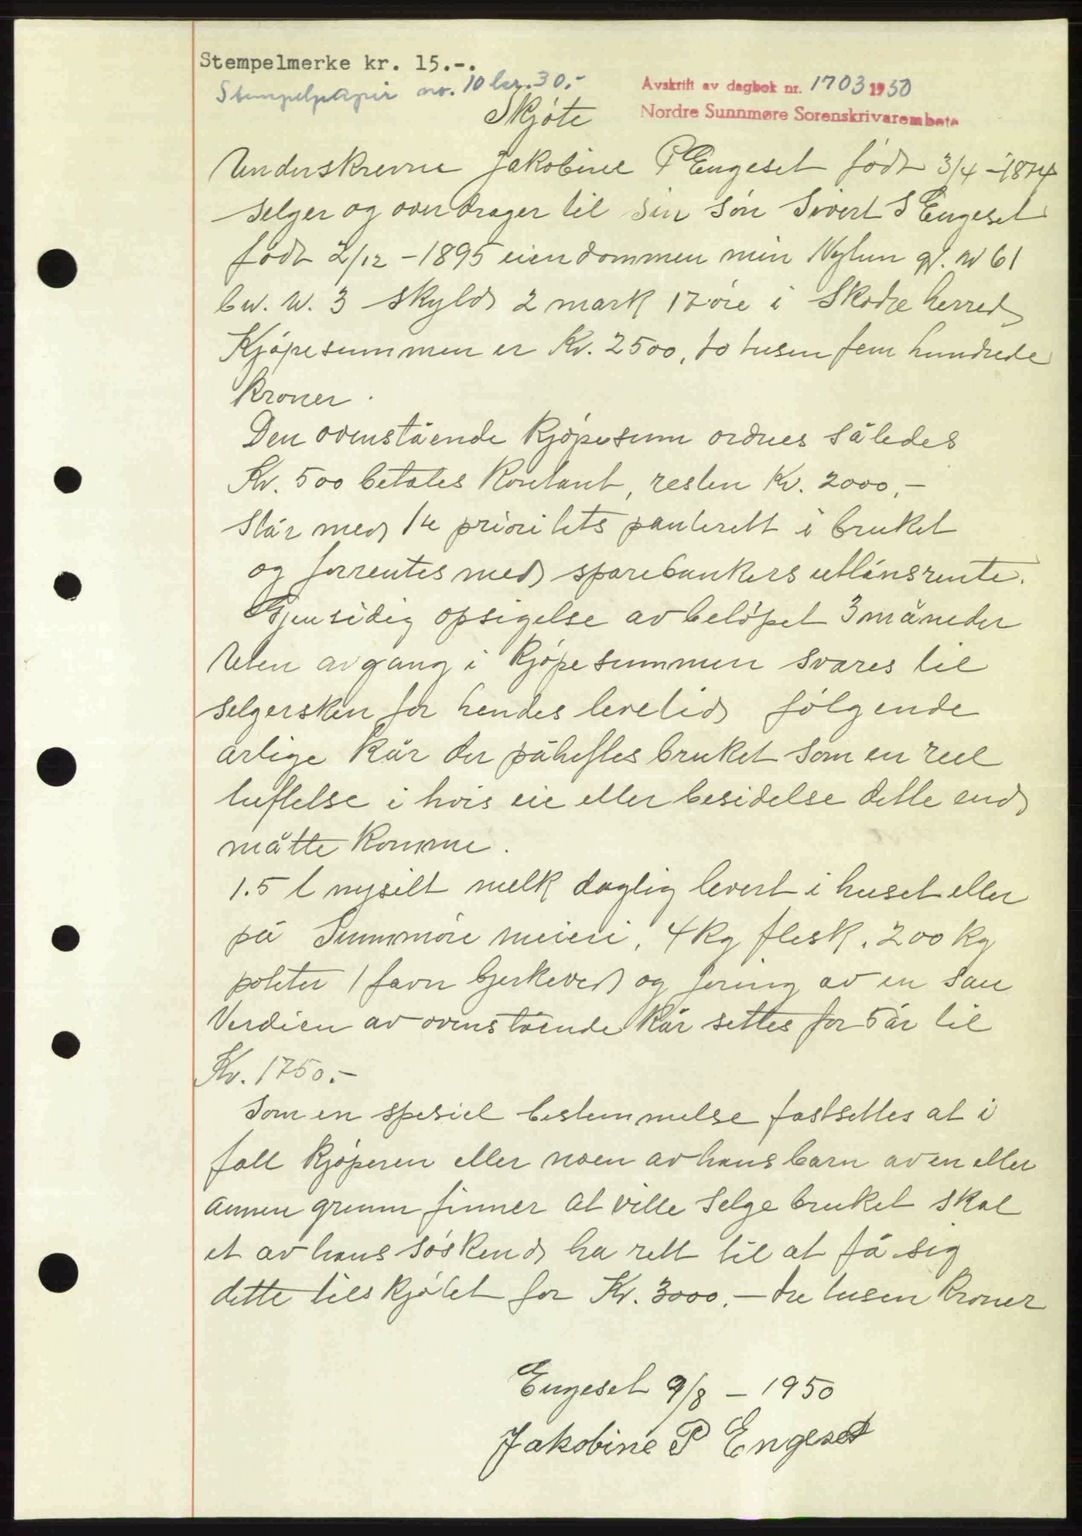 Stempelmerke kr. 15.-.
Stempelpapir nr. 10 kr. 30.-
Avskrift av dagbok nr. 1703 1950
Nordre Sunnmøre Sorenskrivarembete
Skjøte
Underskrevne Jakobine P Engeset født 3/4 - 1874
selger og overdrager til sin søn Sivert S Engeset
født 2/12 - 1895 eiendommen min Nylun gr. N 61
br. N. 3 skyld 2 mark 17 øre i Skodje herred
Kjøpesummen er Kr. 2500, to tusen fem hundrede
kroner.
Den ovenstående kjøpesum ordnes således
Kr. 500 betales kontant, resten Kr. 2000,-
står med 1ste prioritets panterett i bruket
og forrentes med sparebankers utlånsrente.
Gjensidig opsigelse av beløpet 3 måneder
Uten avgang i kjøpesummen svares til
selgersken for hendes levetid følgende
årlige kår der påheftes bruket som en reel
heftelse i hvis eie eller besidelse dette end
måtte komme.
1.5 l nysilt melk daglig levert i huset eller
på Sunnmøre meieri, 4 kg flesk, 200 kg
poteter 1 favn bjerkeved og foring av en sau
Verdien av ovenstående kår settes for 5 år til
Kr. 1750.-
Som en spesiel bestemmelse fastsettes at i
fall kjøperen eller noen av hans barn av en eller
annen grunn finner at ville selge bruket skal
et av hans søskend ha rett til at få sig
dette tilskjøtet for Kr. 3000.- tre tusen kroner
Engeset 9/8 - 1950
Jakobine P Engeset